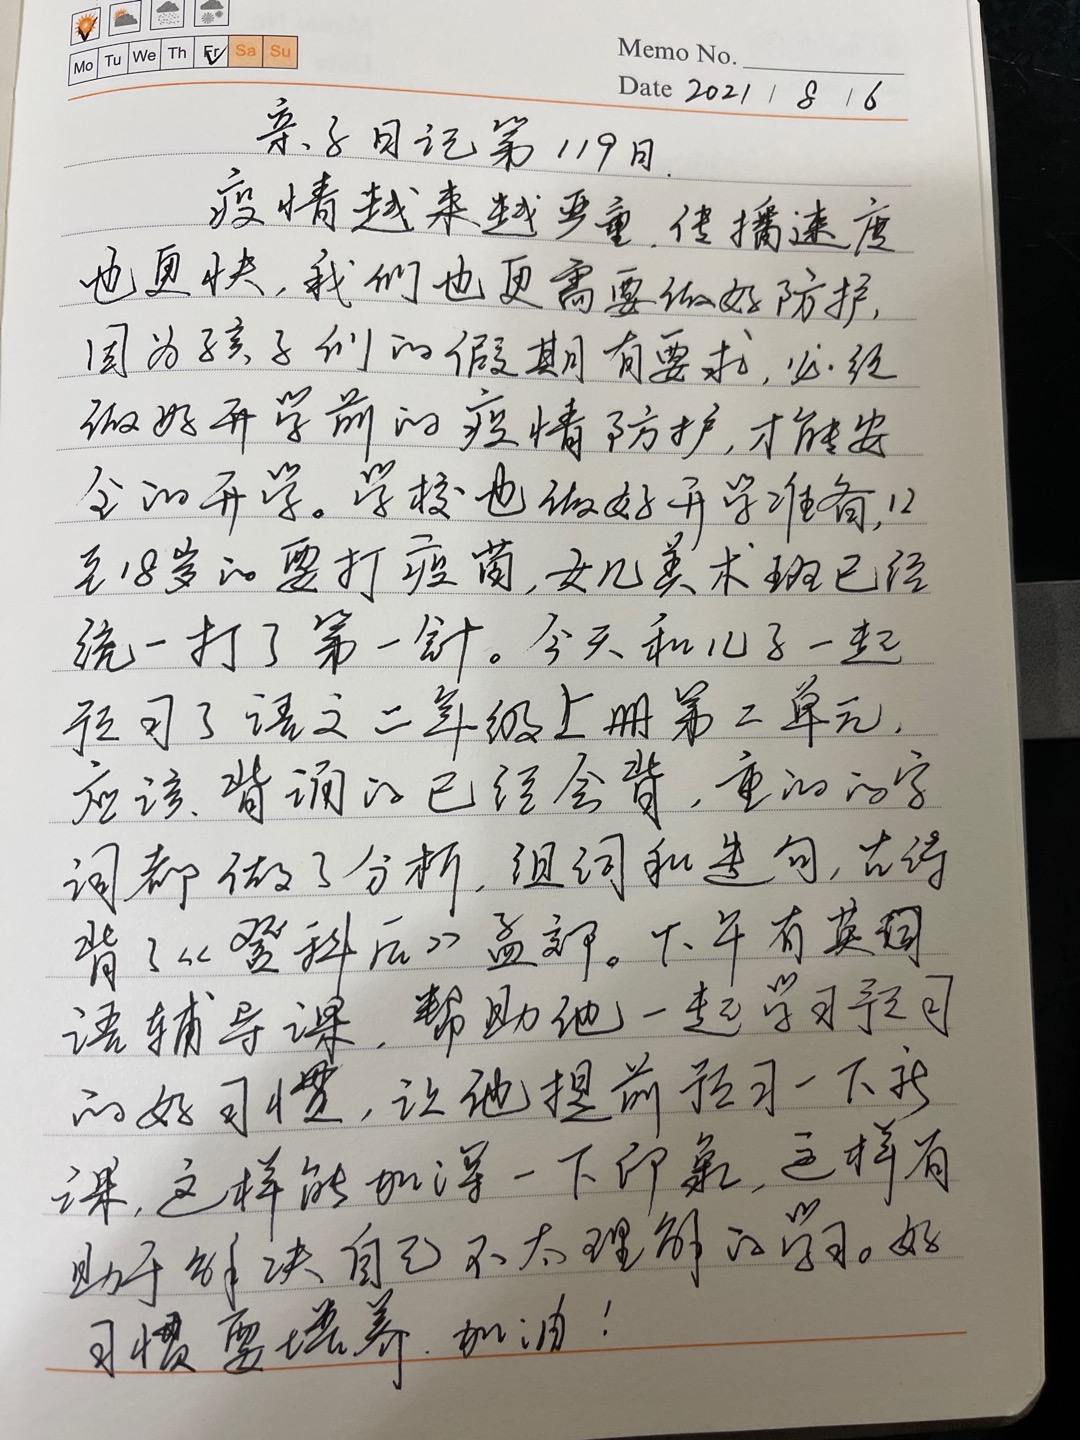 Mo Tu We Th Fr Sa Su
Memo No.
Date 2021 / 8 / 6
亲子日记第119日.
疫情越来越严重,传播速度
也更快,我们也更需要做好防护,
因为孩子们的假期有要求,必须
做好开学前的疫情防护,才能安
全的开学。学校也做好开学准备,12
至18岁的要打疫苗,女儿美术班已经
统一打了第一针。今天和儿子一起
预习了语文二年级上册第二单元,
应该背诵的已经会背,重的的字
词都做了分析,组词和造句,古诗
背了《登科后》孟郊。下午有英词
语辅导课,帮助他一起学习预习
的好习惯,让他提前预习一下新
课,这样能加深一下印象,这样有
助于解决自己不太理解的学习。好
习惯要培养.加油!